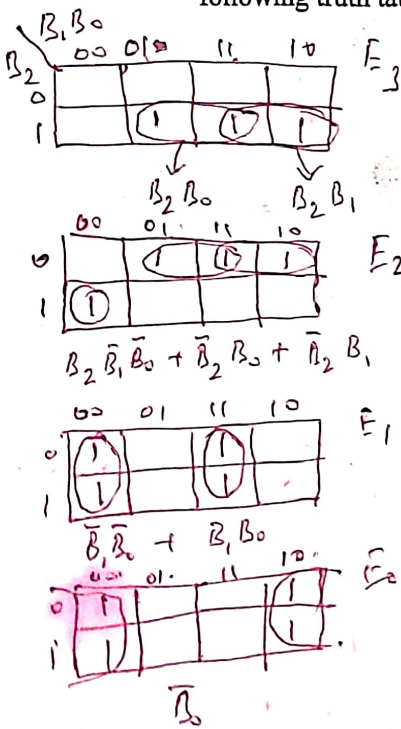 following truth tab
B₁B₀
B₂ 00 01 11 10 E₃
0
1 1 1 1
B₂B₀ B₂B₁
00 01 11 10
0 1 1 1 E₂
1 1
B₂ B̄₁ B̄₀ + B̄₂ B₀ + B̄₂ B₁
00 01 11 10 E₁
0 1 1
1 1 1
B̄₁B̄₀ + B₁B₀
00 01 11 10 E₀
0 1 1
1 1 1
B̄₀